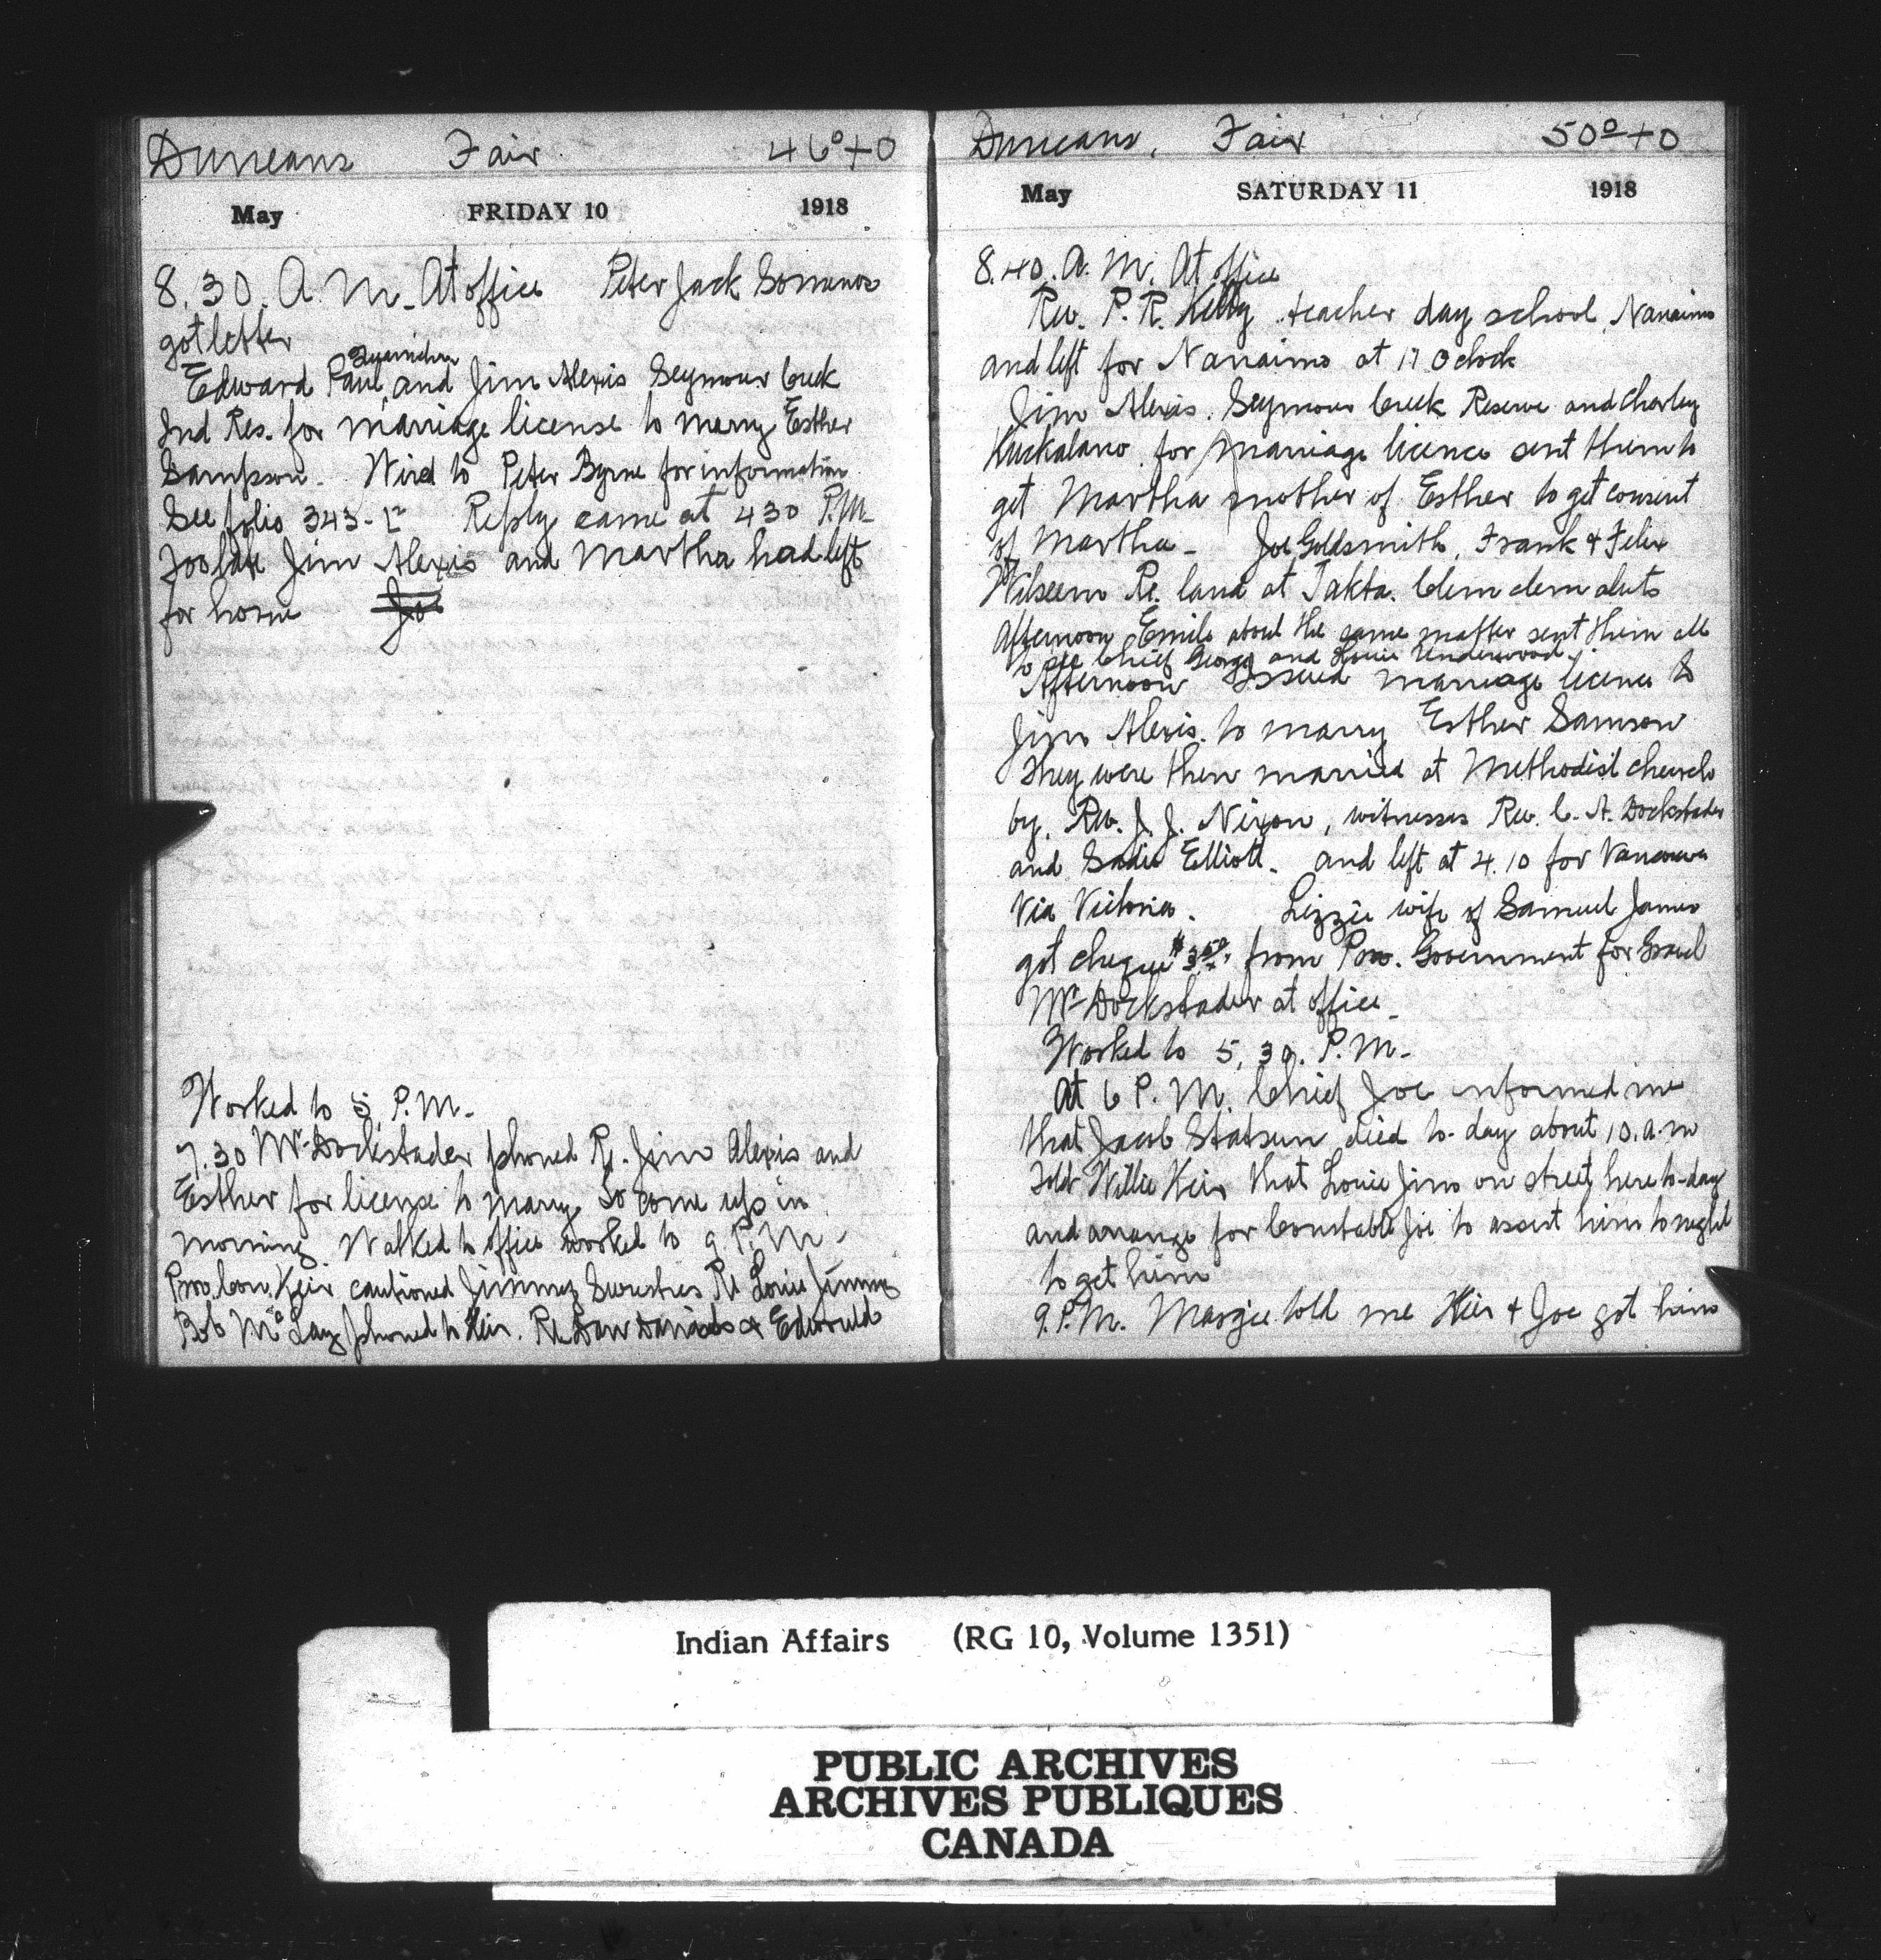 Duncans Fair 46°+0
May FRIDAY 10 1918
8.30. A. M. At office Peter Jack Somenos
got letter
Edward Paul, and Jim Alexis Seymour Creek
Ind Res. for marriage license to marry Esther
Sampson. Wired to Peter Byrne for information
See folio 343-L Reply came at 430 P.M.
Too late Jim Alexis and Martha had left
for home Joe
Worked to 5 P.M.
7.30 Mr Dockstader phoned Re. Jim Alexis and
Esther for license to marry to come up in
morning. Walked to office worked to 9 P.M.
Prov. Con. Keir cautioned Jimmy Re Louie Jimmy
Bob McLay phoned to Keir. Re Dan Daniels &
Duncans, Fair 50°+0
May SATURDAY 11 1918
8.40. A. M. At office
Rev. P. R. Kelly teacher day school, Nanaimo
and left for Nanaimo at 11 Oclock
Jim Alexis. Seymour Creek Reserve and Charley
for marriage licence sent them to
get Martha mother of Esther to get consent
of Martha - Joe Goldsmith, Frank & Felix
Wilseem Re. land at Clem clem aluts
Afternoon Emile about the same matter sent them all
to see Chief George and Louie Underwood.
Afternoon Issued marriage licence to
Jim Alexis. to marry Esther Samson
They were then married at Methodist church
by. Rev. J. J. Nixon, witnesses Rev. C. A. Dockstader
and Sadie Elliott. and left at 4.10 for Vancouver
Via Victoria. Lizzie wife of Samuel James
got cheque $3.50, from Prov. Government for Gravel
Mr Dockstader at office.
Worked to 5,30. P.M.
At 6 P.M. Chief Joe informed me
that Jacob Statsun died to-day about 10. a.m
Told Willie Keir that Louie Jim on street here to-day
and arrange for Constable Joe to assist him to night
to get him
9.P.M. Margie told me Keir & Joe got him
Indian Affairs (RG 10, Volume 1351)
PUBLIC ARCHIVES
ARCHIVES PUBLIQUES
CANADA